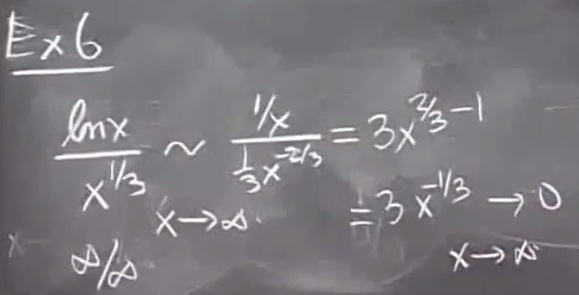 Ex 6
lnx / x^{1/3} ~ (1/x) / (1/3 x^{-2/3}) = 3x^{2/3-1}
x→∞ = 3x^{-1/3} → 0
∞/∞ x→∞